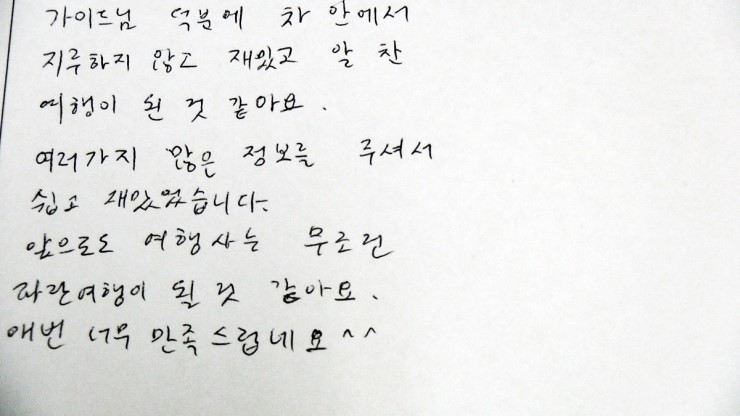 가이드님 덕분에 차 안에서
지루하지 않고 재밌고 알 찬
여행이 된 것 같아요.
여러가지 많은 정보를 주셔서
쉽고 재밌었습니다.
앞으로도 여행사는 무조건
파란여행이 될 것 같아요.
매번 너무 만족스럽네요^^